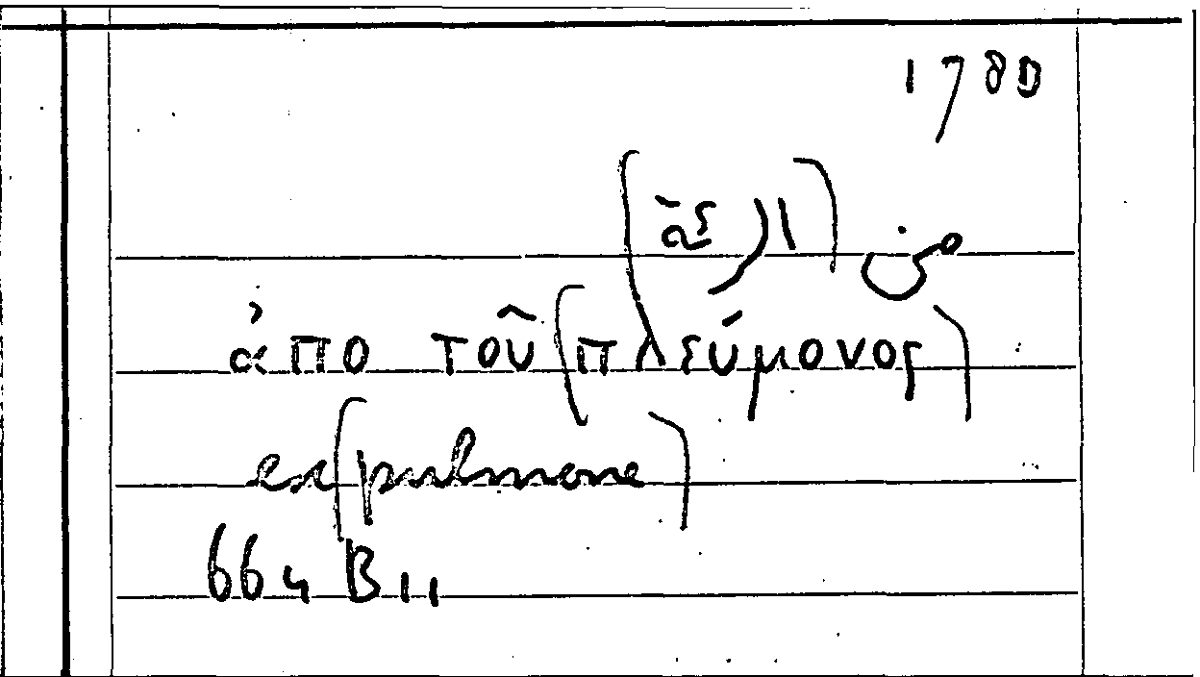 178D
من (الرئة)
ἀπο τοῦ (πλεύμονος)
ex (pulmone)
664 B 11